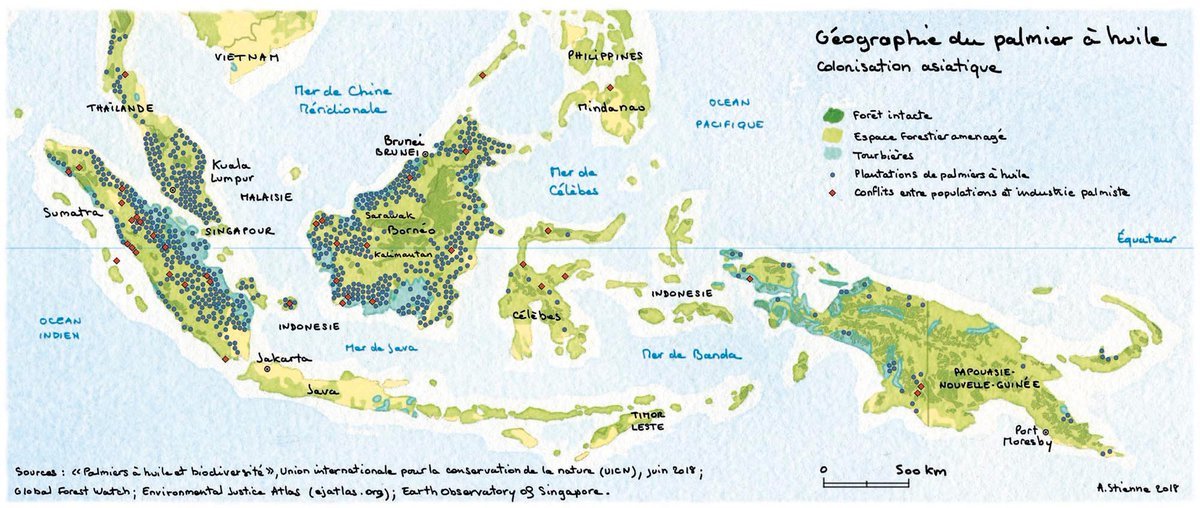 Géographie du palmier à huile
Colonisation asiatique
Forêt intacte
Espace forestier amenagé
Tourbières
Plantations de palmiers à huile
Conflits entre populations et industrie palmiste
VIETNAM
PHILIPPINES
Mer de Chine
Méridionale
THAÏLANDE
Mindanao
OCEAN
PACIFIQUE
Brunei
BRUNEI
Kuala
Lumpur
MALAISIE
Mer de
Célèbes
Sumatra
SINGAPOUR
Sarawak
Bornéo
Kalimantan
Équateur
INDONESIE
INDONESIE
Célèbes
OCEAN
INDIEN
Mer de Java
Mer de Banda
Jakarta
Java
PAPOUASIE-
NOUVELLE-GUINÉE
TIMOR
LESTE
Port
Moresby
Sources : «Palmiers à huile et biodiversité», Union internationale pour la conservation de la nature (UICN), juin 2018 ;
Global Forest Watch ; Environmental Justice Atlas (ejatlas.org) ; Earth Observatory of Singapore.
0 500 km
A. Stienne 2018